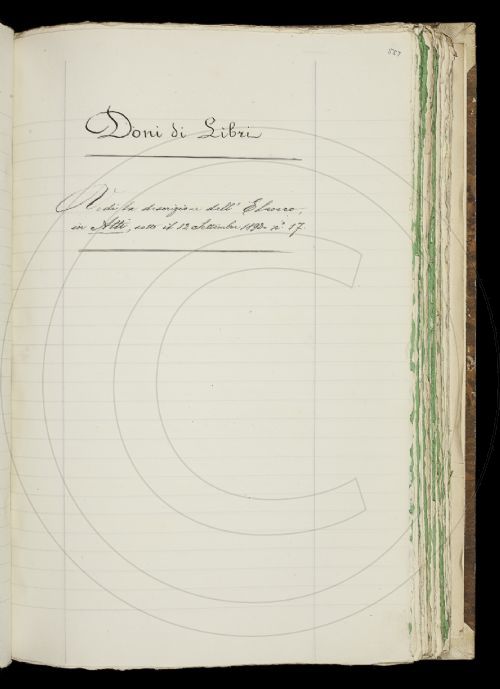 557
Doni di Libri
Vedi la descrizione dell' Elenco,
in Atti, sotto il 12 Settembre 1892 n.° 17.